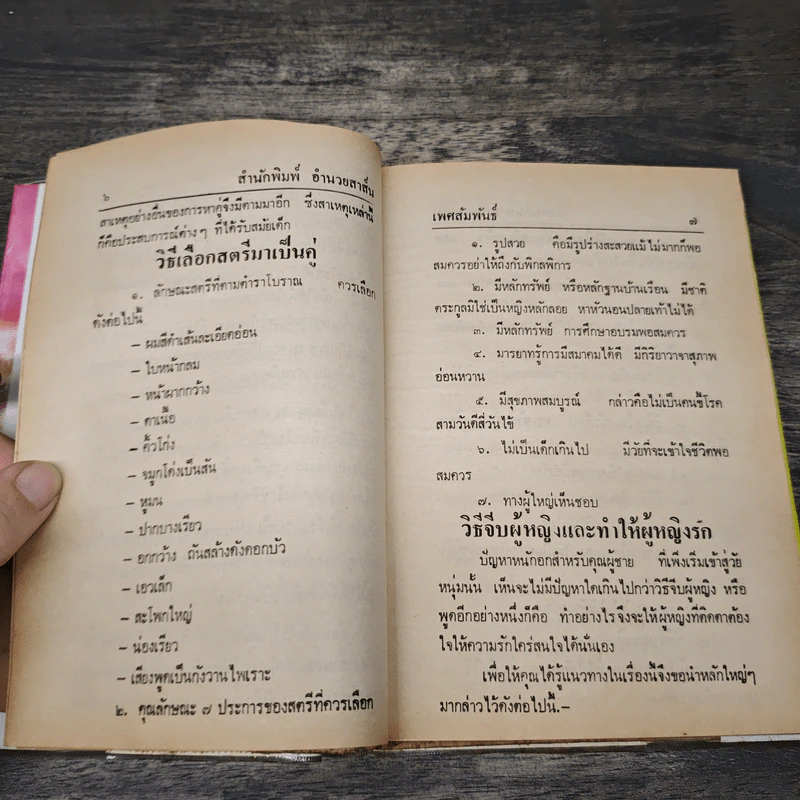 ๖ สำนักพิมพ์ อำนวยสาส์น
สาเหตุอย่างอื่นของการหาคู่จึงมีตามมาอีก ซึ่งสาเหตุเหล่านี้
ก็คือประสบการณ์ต่างๆ ที่ได้รับสมัยเด็ก
วิธีเลือกสตรีมาเป็นคู่
๑. ลักษณะสตรีที่ตามตำราโบราณ ควรเลือก
ดังต่อไปนี้
– ผมสีดำเส้นละเอียดอ่อน
– ใบหน้ากลม
– หน้าผากกว้าง
– ตาเนื้อ
– คิ้วโก่ง
– จมูกโด่งเป็นสัน
– หูมน
– ปากบางเรียว
– อกกว้าง ถันสล้างดังดอกบัว
– เอวเล็ก
– สะโพกใหญ่
– น่องเรียว
– เสียงพูดเป็นกังวานไพเราะ
๒. คุณลักษณะ ๗ ประการของสตรีที่ควรเลือก
เพศสัมพันธ์ ๗
๑. รูปสวย คือมีรูปร่างสะสวยแม้ไม่มากก็พอ
สมควรอย่าให้ถึงกับพิกลพิการ
๒. มีหลักทรัพย์ หรือหลักฐานบ้านเรือน มีชาติ
ตระกูลมิใช่เป็นหญิงหลักลอย หาหัวนอนปลายเท้าไม่ได้
๓. มีหลักทรัพย์ การศึกษาอบรมพอสมควร
๔. มารยาทรู้การมีสมาคมได้ดี มีกิริยาวาจาสุภาพ
อ่อนหวาน
๕. มีสุขภาพสมบูรณ์ กล่าวคือไม่เป็นคนขี้โรค
สามวันดีสี่วันไข้
๖. ไม่เป็นเด็กเกินไป มีวัยที่จะเข้าใจชีวิตพอ
สมควร
๗. ทางผู้ใหญ่เห็นชอบ
วิธีจีบผู้หญิงและทำให้ผู้หญิงรัก
ปัญหาหนักอกสำหรับคุณผู้ชาย ที่เพิ่งเริ่มเข้าสู่วัย
หนุ่มนั้น เห็นจะไม่มีปัญหาใดเกินไปกว่าวิธีจีบผู้หญิง หรือ
พูดอีกอย่างหนึ่งก็คือ ทำอย่างไรจึงจะให้ผู้หญิงที่ติดตาต้อง
ใจให้ความรักใคร่สนใจได้นั่นเอง
เพื่อให้คุณได้รู้แนวทางในเรื่องนี้จึงขอนำหลักใหญ่ๆ
มากล่าวไว้ดังต่อไปนี้.–